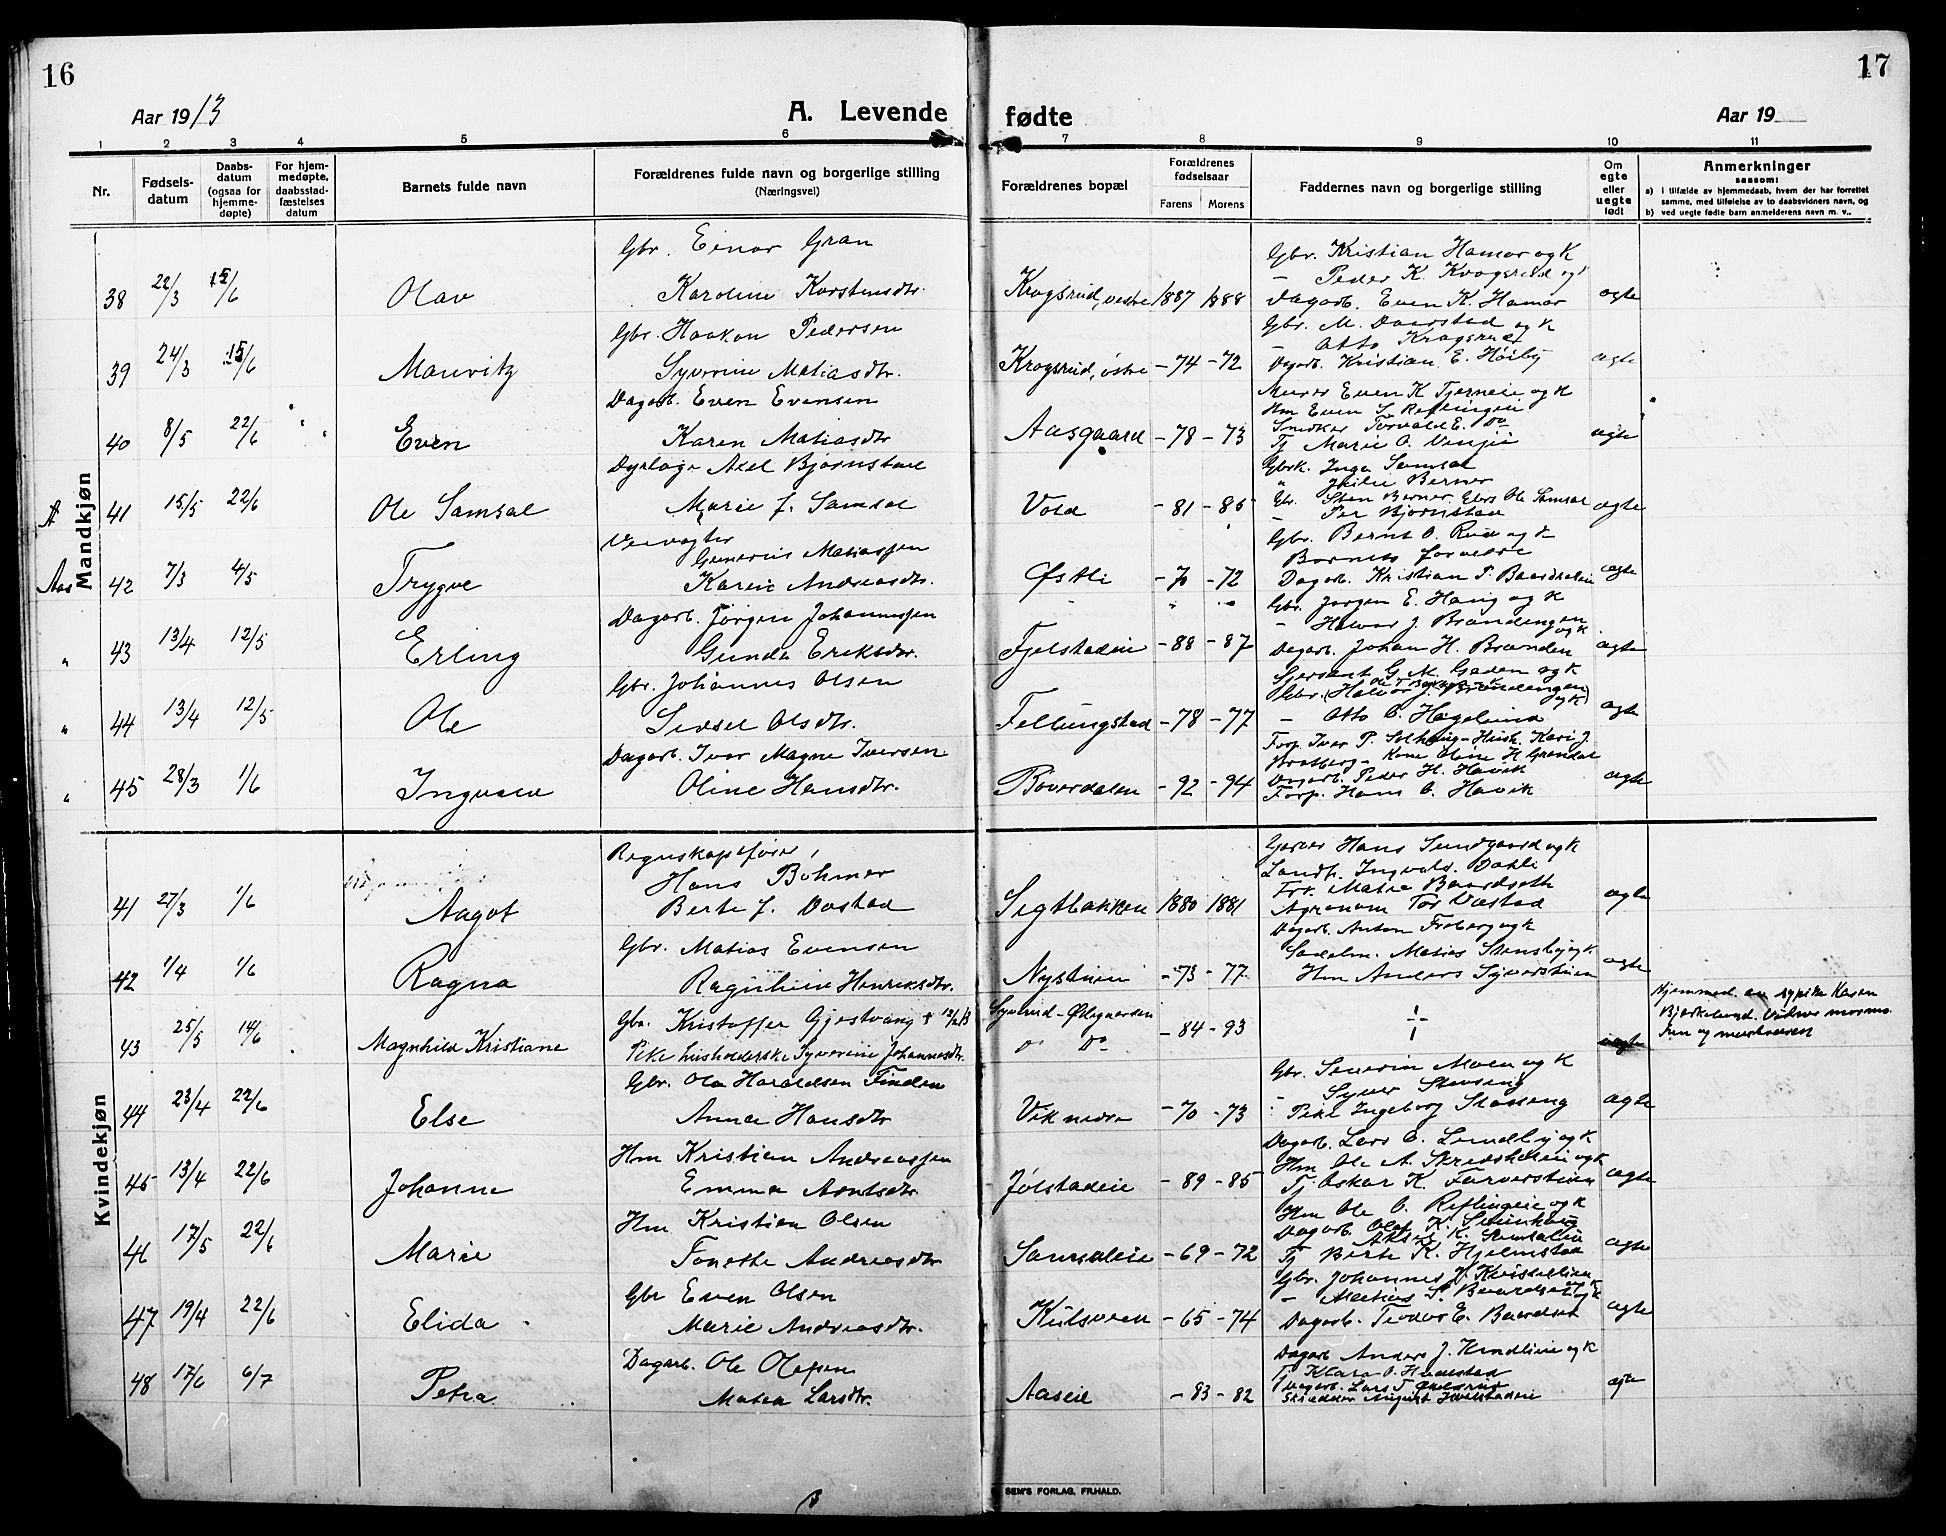 16
17
Aar 1913
A. Levende fødte
Aar 19
1 2 3 4 5 6 7 8 9 10 11
Nr.
Fødsels-
datum
Daabs-
datum
(ogsaa for
hjemme-
døpte)
For hjem-
medøpte,
daabsstad-
fæstelses
datum
Barnets fulde navn
Forældrenes fulde navn og borgerlige stilling
(Næringsvei)
Forældrenes bopæl
Forældrenes
fødselsaar
Farens Morens
Faddernes navn og borgerlige stilling
Om
egte
eller
uegte
født
Anmerkninger
saasom:
a) i tilfælde av hjemmedaab, hvem der har forrettet
samme, med tilføielse av to daabsvidners navn, og
b) ved uegte fødte barn anmelderens navn m. v..
Mandkjøn
Gbr. Einar Gran
Gbr. Kristian Hamar og k
– Peder K. Krogsrud og
38 22/3 15/6 Olav Karoline Karstensdtr. Krogsrud, vestre 1887 1888 Dagarb. Even K. Hamar ægte
Gbr. Haakon Pedersen
Gbr. M. Daarstad og k
– Otto Krogsrud
39 24/3 15/6 Mauritz Syverine Matiasdtr. Krogsrud, østre – 74 – 72 Dagarb. Kristian E. Høiby ægte
Dagarb. Even Evensen
Murer Even K. Tjerneie og k
Hm Even S. Reflingen
40 8/5 22/6 Even Karen Matiasdtr Aasgaard – 78 – 73 Snedker Torvald E. Do ægte
Tj Marie O.
Dyrlæge Axel Bjørnstad
Gbrk. Inga Samsal
" Berner
A 41 15/5 22/6 Ole Samsal Marie J. Samsal Vold – 81 – 85 Gbr. Sten Berner, Ole Samsal ægte
– Per Bjørnstad
Veivogter
Gunerius Matiassen
Gbr. Bernt O. Rud og k
Barnets forældre
Aas 42 7/3 4/5 Trygve Karen Andreasdtr. Østli – 70 – 72 Dagarb. Kristian P. Baardseteie ægte
Dagarb. Jørgen Johannessen
Gbr. Jørgen E. Haug og k
– Halvor J. Brændengen og k
" 43 13/4 12/5 Erling Gunda Eriksdtr. Fjelstadeie – 88 – 87 Dagarb. Johan H. Brænden ægte
Gbr. Johannes Olsen
Sersant G. M. Gaden og k
Gbr. (Halvor J. Brændengen) og k
" 44 13/4 12/5 Ole Sidsel Olsdtr. Fellungstad – 78 – 77 – Otto O. Hagelund ægte
Dagarb. Ivar Magne Iversen
Forp. Iver P. Solhaug – Husk. Kari J.
Bratberg – Kone Oline H. Grændal
" 45 28/3 1/6 Ingvald Oline Hansdtr. Bøverdalen – 92 – 94 Dagarb. Peder H. Hovik ægte
Forp. Hans O. Hovik
Kvindekjøn
Regnskapsfører
Hans Bøhmer
Garver Hans Sundgaard og k
Landh. Ingvald Dahli
Frk. Matea Baardseth
41 27/3 1/6 Aagot Berte J. Dostad Segtbakken 1880 1881 Agronom Tor Dæstad ægte
Dagarb. Anton Froberg og k
Gbr. Matias Evensen
Sadelm. Matias Stensby og k.
42 1/4 1/6 Ragna Ragnhild Henriksdtr. Nystuen – 73 – 77 Hm Anders Syverstuen ægte
43 25/5 14/6 Magnhild Kristiane Gbr. Kristoffer Gjestvang + 12/2 13 Sylund-Ødegaarden – 84 – 93 ÷ ægte
Pike husholderske Syverine Johannesdtr. Do Do
Hjemmed. av Karen
Bjørkelund. Vidner mormo-
ren og
Gbr. Ola Haraldsen Finden
Gbr. Severin Moen og k
– Syver Stenseng
44 23/4 22/6 Else Anna Hansdtr Vik nedre – 70 – 73 Pike Ingeborg Stenseng ægte
Hm Kristian Andreassen
Dagarb. Lars O. Lundby og k
Hm Ole A. og k
45 13/4 22/6 Johanne Emma Arntsdtr. Jølstadeie – 89 – 85 Tj Oskar K. Farverstuen ægte
Hm Kristian Olsen
Hm Ole O. Reflingeie og k
Dagarb. Olaf K.
Aksel K. Samsaleie
46 17/5 22/6 Marie Tonette Andreasdtr Samsaleie – 69 – 72 Tj Berte K. Hjelmstad ægte
Gbr Even Olsen
Gbr. Johannes J. Kristellien
– Matias S. Baardset og k
47 19/4 22/6 Elida Marie Andreasdtr. Kulsveen – 65 – 74 Dagarb. Teodor E. Baardset ægte
Dagarb. Ole Olafsen
Dagarb Anders J. og k
Tj Klara O.
48 17/6 6/7 Petra Matea Larsdtr. Aaseie – 83 – 82 Dagarb. Lars T. ægte
Skredder August
SEM'S FORLAG, FR.HALD.